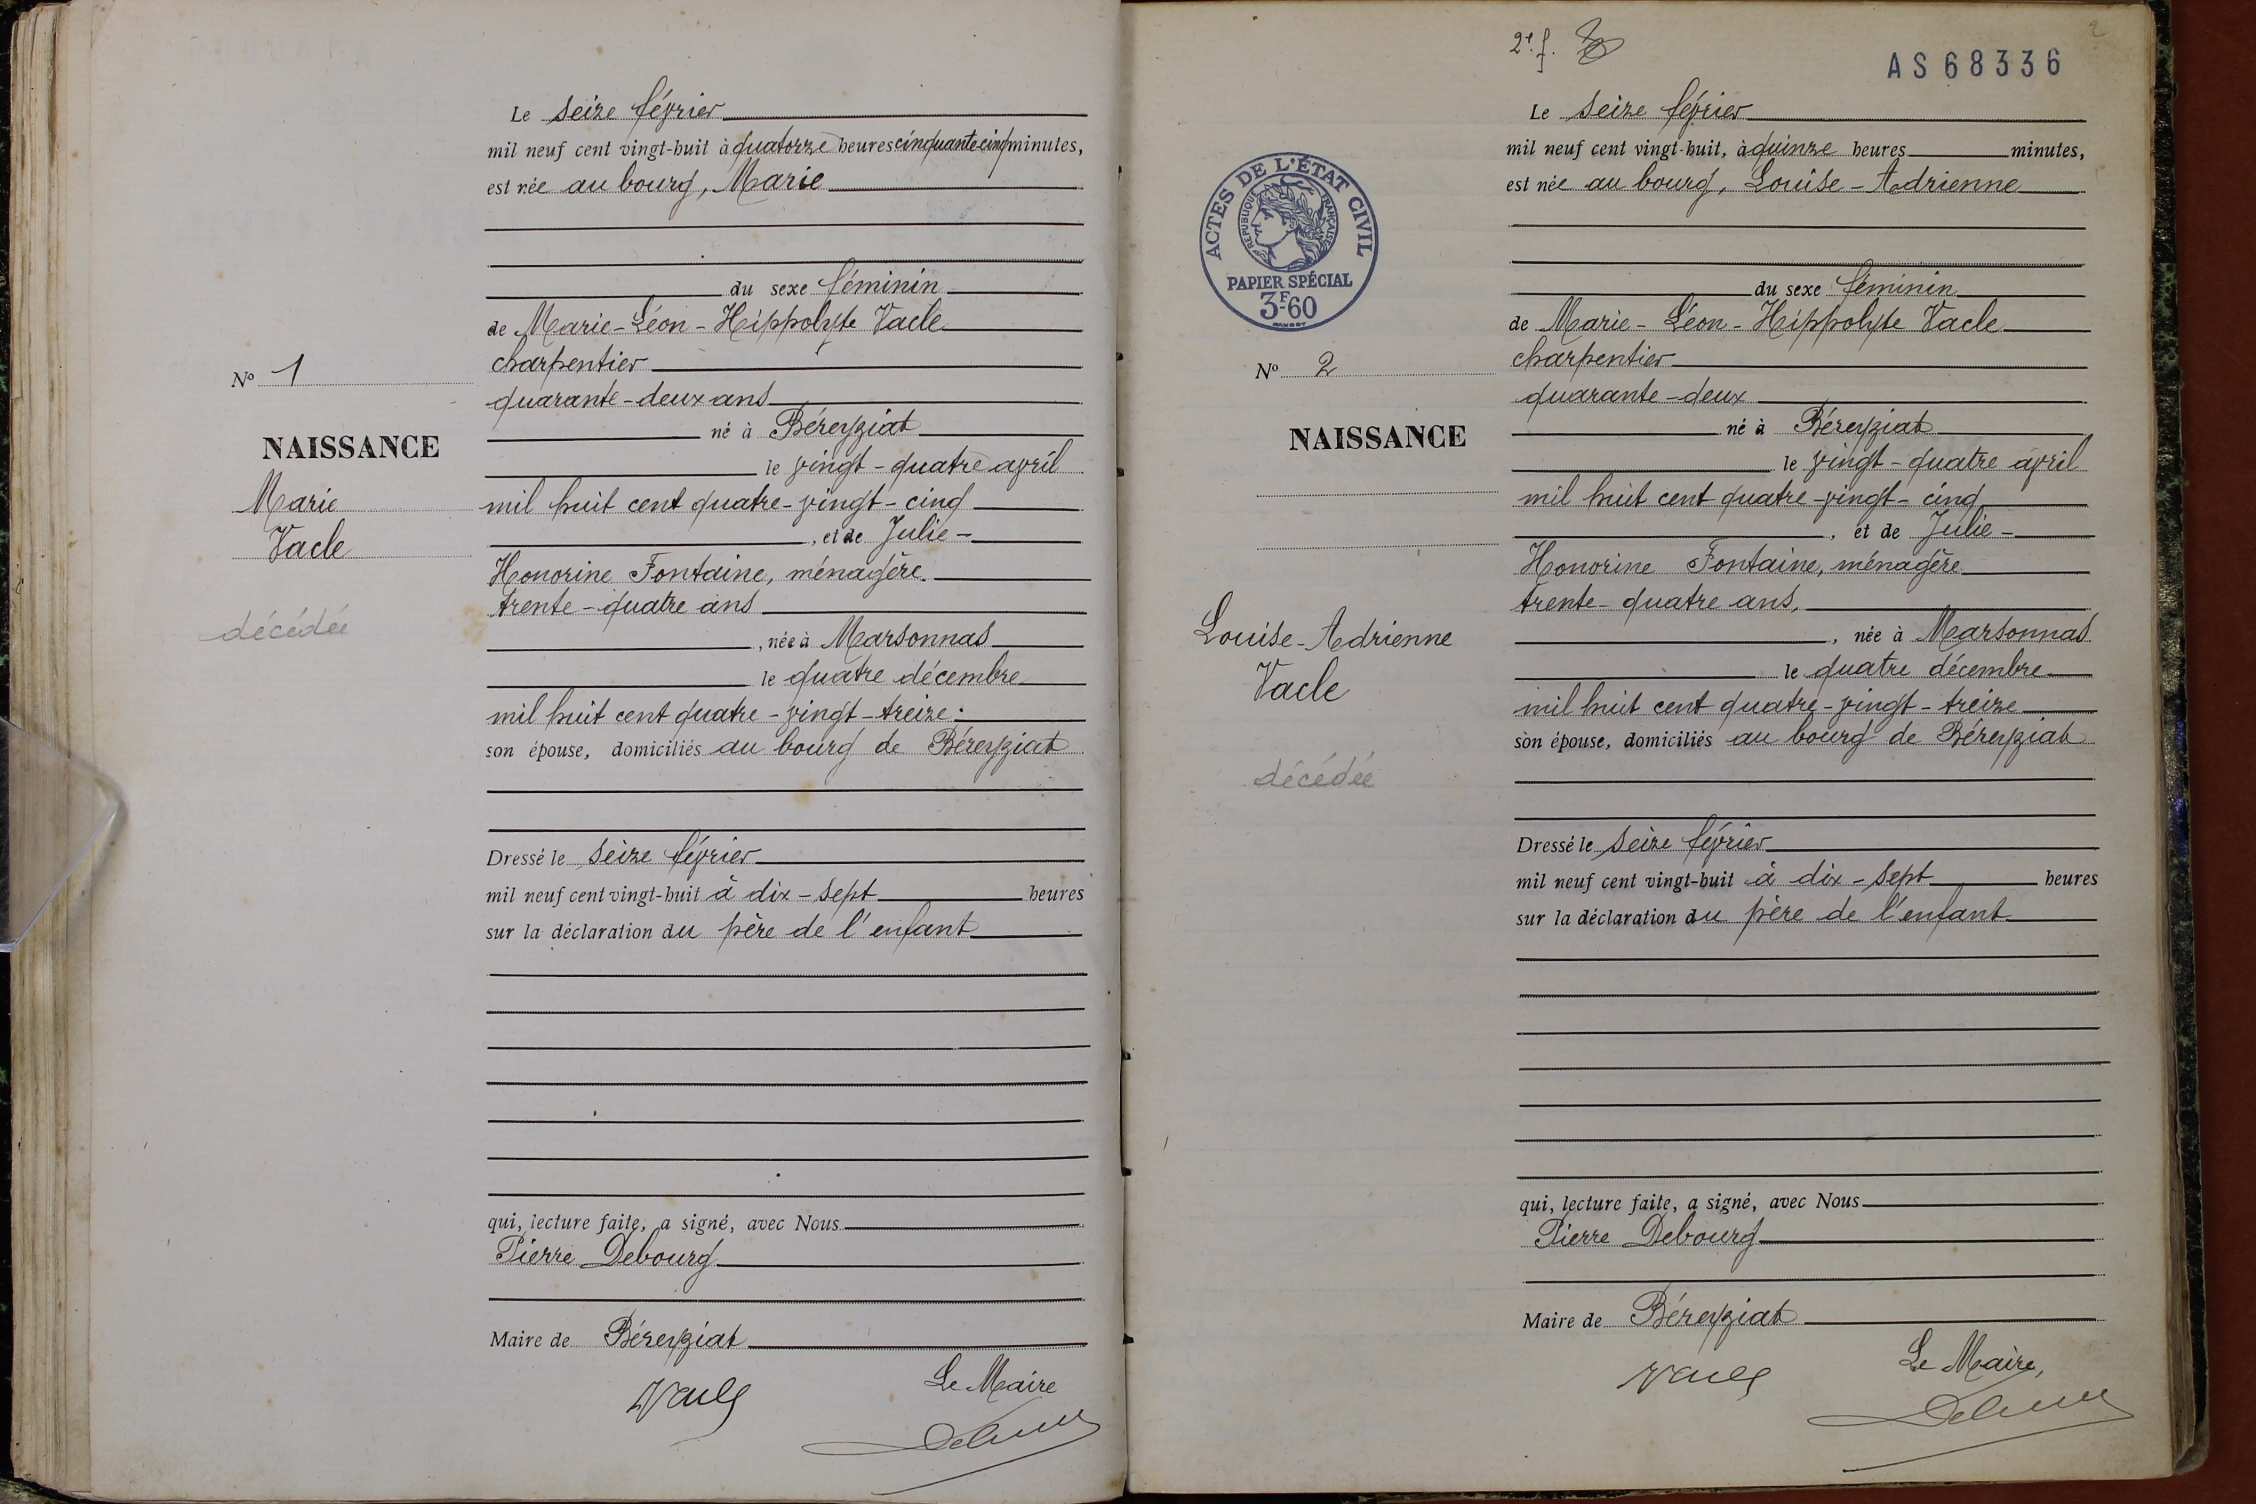 Le seize février
mil neuf cent vingt-huit à quatorze heures cinquante cinq minutes,
est née au bourg, Marie
du sexe féminin
de Marie-Léon-Hippolyte Vacle
charpentier
N° 1
quarante-deux ans
né à Béreyziat
NAISSANCE
le vingt-quatre avril
Marie
mil huit cent quatre-vingt-cinq
Vacle
, et de Julie-
Honorine Fontaine, ménagère
trente-quatre ans
décédée
, née à Marsonnas
le quatre décembre
mil huit cent quatre-vingt-treize.
son épouse, domiciliés au bourg de Béreyziat
Dressé le seize février
mil neuf cent vingt-huit à dix-sept heures
sur la déclaration du père de l'enfant
qui, lecture faite, a signé, avec Nous
Pierre Debourg
Maire de Béreyziat
Le Maire
Vacle
2e f.
2
AS68336
Le seize février
mil neuf cent vingt-huit, à quinze heures minutes,
est née au bourg, Louise-Adrienne
ACTES DE L'ÉTAT CIVIL
RÉPUBLIQUE FRANÇAISE
PAPIER SPÉCIAL
3F-60
du sexe féminin
de Marie-Léon-Hippolyte Vacle
charpentier
N° 2
quarante-deux
né à Béreyziat
NAISSANCE
le vingt-quatre avril
mil huit cent quatre-vingt-cinq
, et de Julie-
Honorine Fontaine, ménagère
trente-quatre ans,
Louise-Adrienne
Vacle
, née à Marsonnas
le quatre décembre
mil huit cent quatre-vingt-treize
son épouse, domiciliés au bourg de Béreyziat
décédée
Dressé le seize février
mil neuf cent vingt-huit à dix-sept heures
sur la déclaration du père de l'enfant
qui, lecture faite, a signé, avec Nous
Pierre Debourg
Maire de Béreyziat
Le Maire,
Vacle